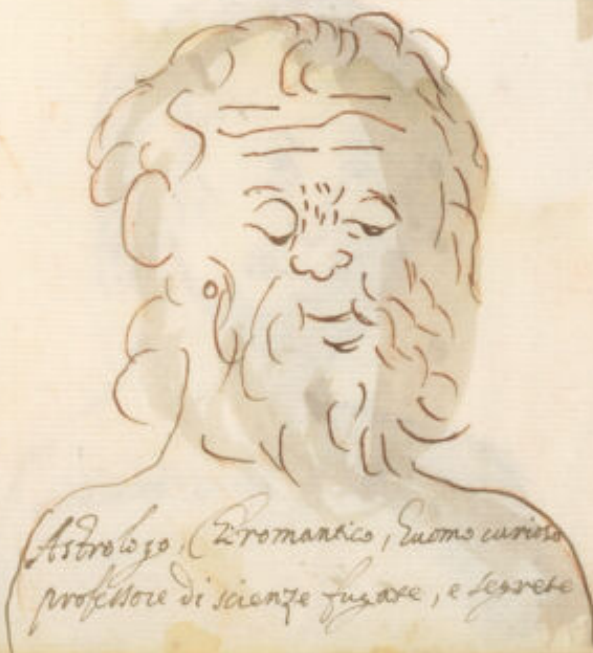 Astrologo, Chiromantico, huomo curioso
professore di scienze fugaxe, e segrete